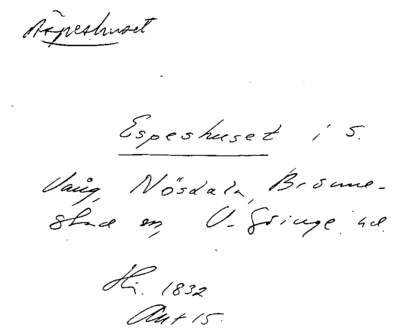 Äspeshuset
Espeshuset i S.
Vång, Nösdala, Brönne-
stad sn, V. Göinge hd.
Hi. 1832
Ant 15.